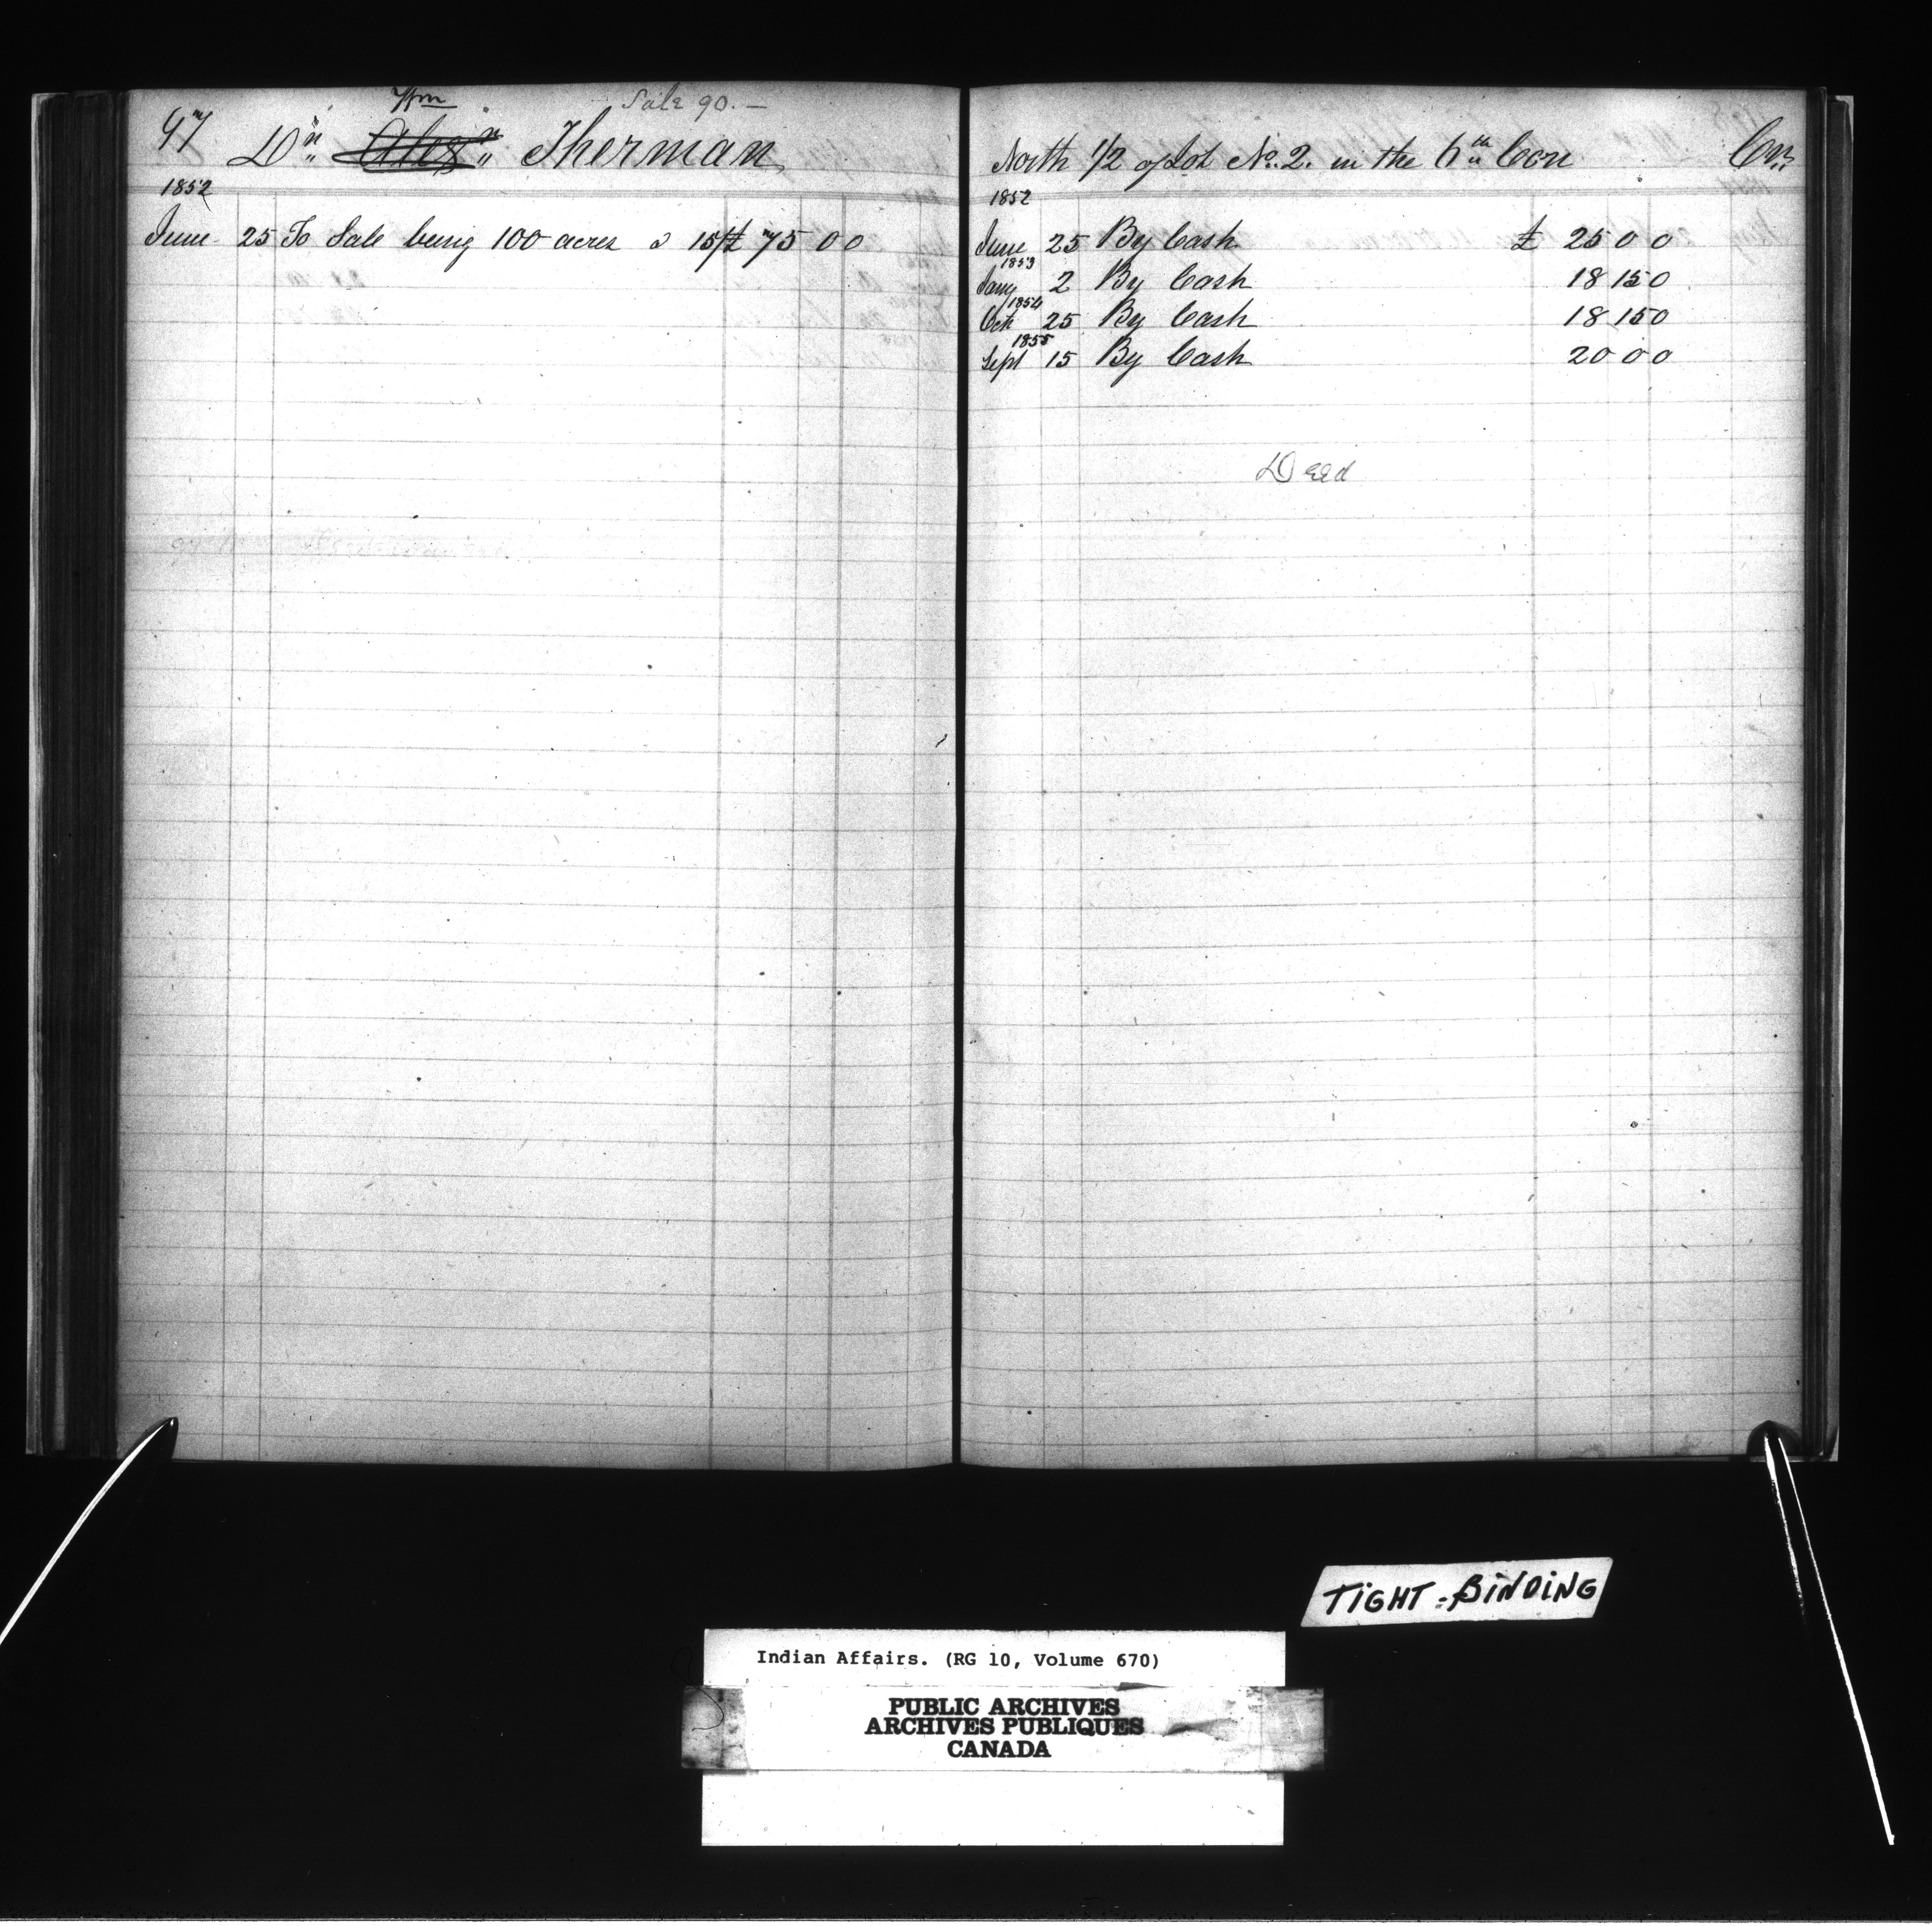 97 Sale 90. —
Wm
Dr Alexr Sherman
1852
June 25 To Sale being 100 acres @ 15/ £ 75 0 0
North 1/2 of Lot No. 2. in the 6th Con Cr
1852
June 25 By Cash £ 25 0 0
1853
Jany 2 By Cash 18 15 0
1854
Oct 25 By Cash 18 15 0
1855
Sept 15 By Cash 20 0 0
Deed
TIGHT-BINDING
Indian Affairs. (RG 10, Volume 670)
PUBLIC ARCHIVES
ARCHIVES PUBLIQUES
CANADA